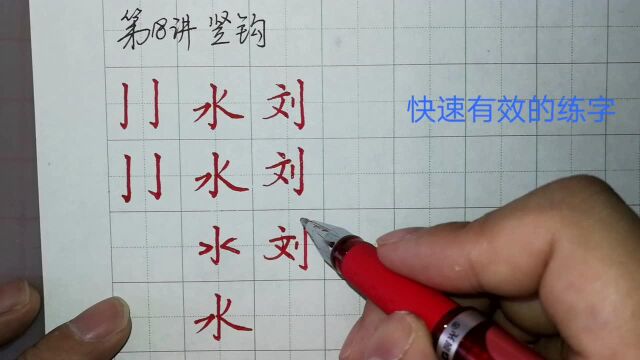 第18讲 竖钩
亅亅 水 刘
快速有效的练字
亅亅 水 刘
水 刘
水